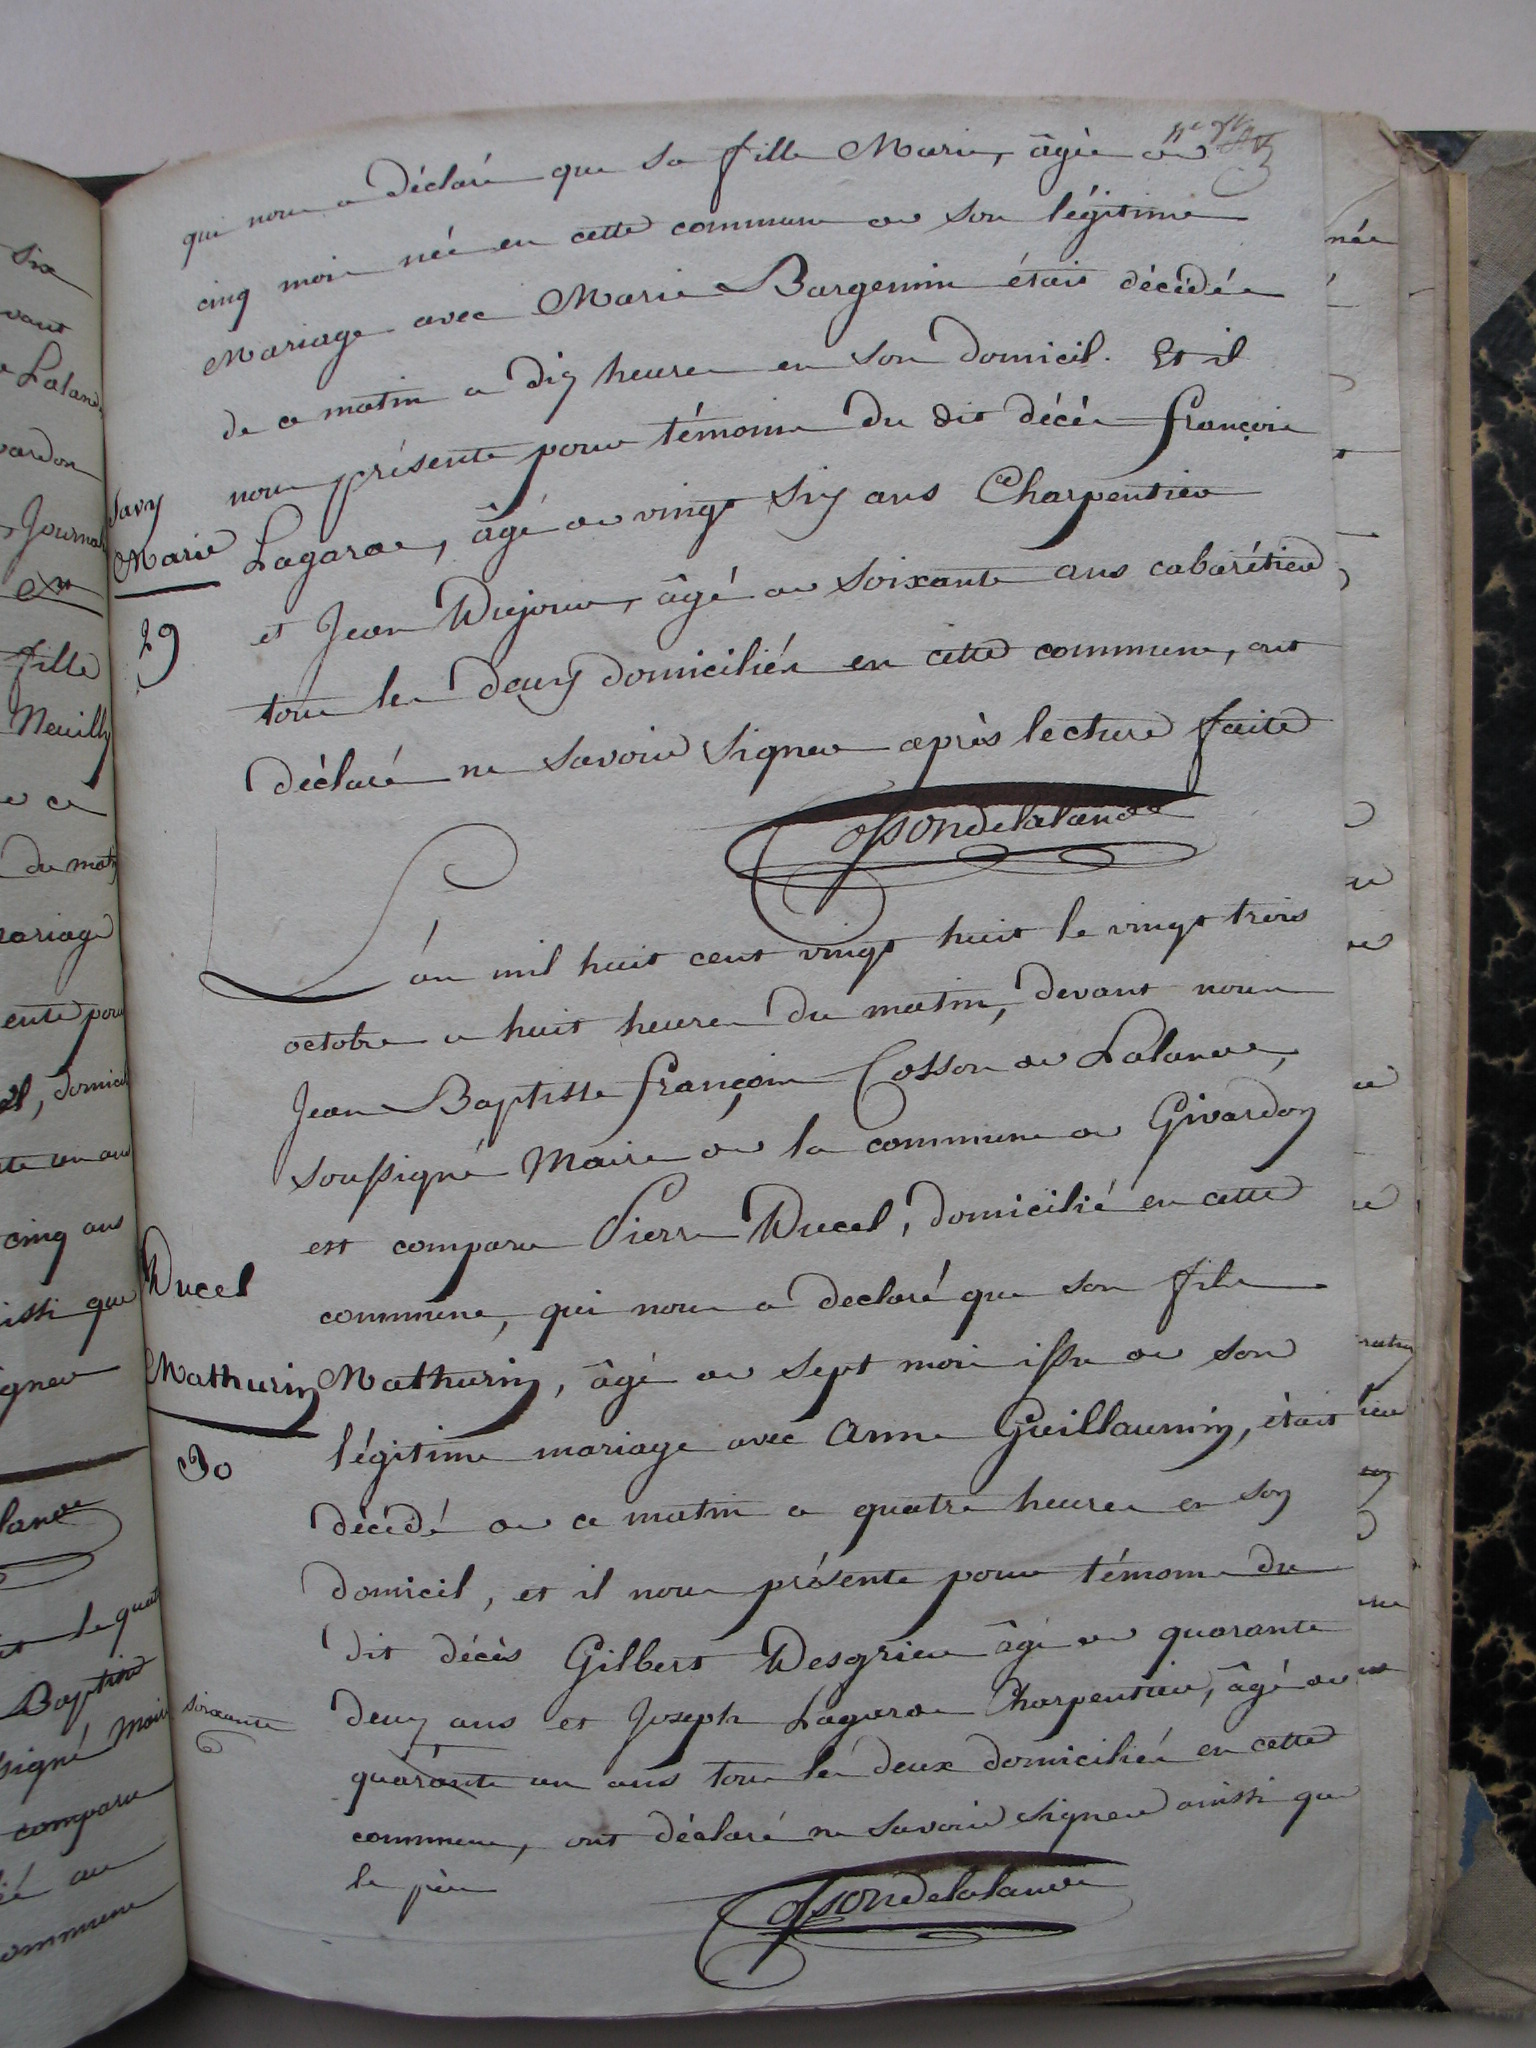 qui nous a déclaré que sa fille Marie, âgée de
cinq mois née en cette commune de son légitime
Mariage avec Marie Bargemin était décédée
de ce matin a dix heures en son domicil. Et il
nous présente pour témoins du dit décès françois
Savy
Marie
29
Lagarde, âgé de vingt six ans Charpentier
et Jean Dujour, âgé de soixante ans cabarétier
tous les deux domiciliés en cette commune, ont
déclaré ne savoir signer après lecture faite
Cossondelalande
L'an mil huit cent vingt huit le vingt trois
octobre a huit heures du matin, devant nous
Jean Baptiste françois Cosson de Lalande,
soussigné Maire de la commune de Givardon
est comparu Pierre Ducel, domicilié en cette
Ducel
Mathurin
30
commune, qui nous a declaré que son fils
Mathurin, âgé de sept mois issu de son
légitime mariage avec Anne Guillaumin, était
décédé de ce matin a quatre heures en son
domicil, et il nous présente pour témoins du
dit décès Gilbert Desgrieu âgé de quarante
deux ans et Joseph Lagarde Charpentier, âgé de
soixante
quarante un ans tous les deux domiciliés en cette
commune, ont déclaré ne savoir signer ainssi que
le père
Cossondelalande
six
vant
Laland
vardon
Journal
fille
Neuilly
ce
du mat
mariage
ente pour
el, domici
te un ans
cinq ans
issi que
igner
lande
le quat
Baptiste
signé Mair
comparu
commune
née